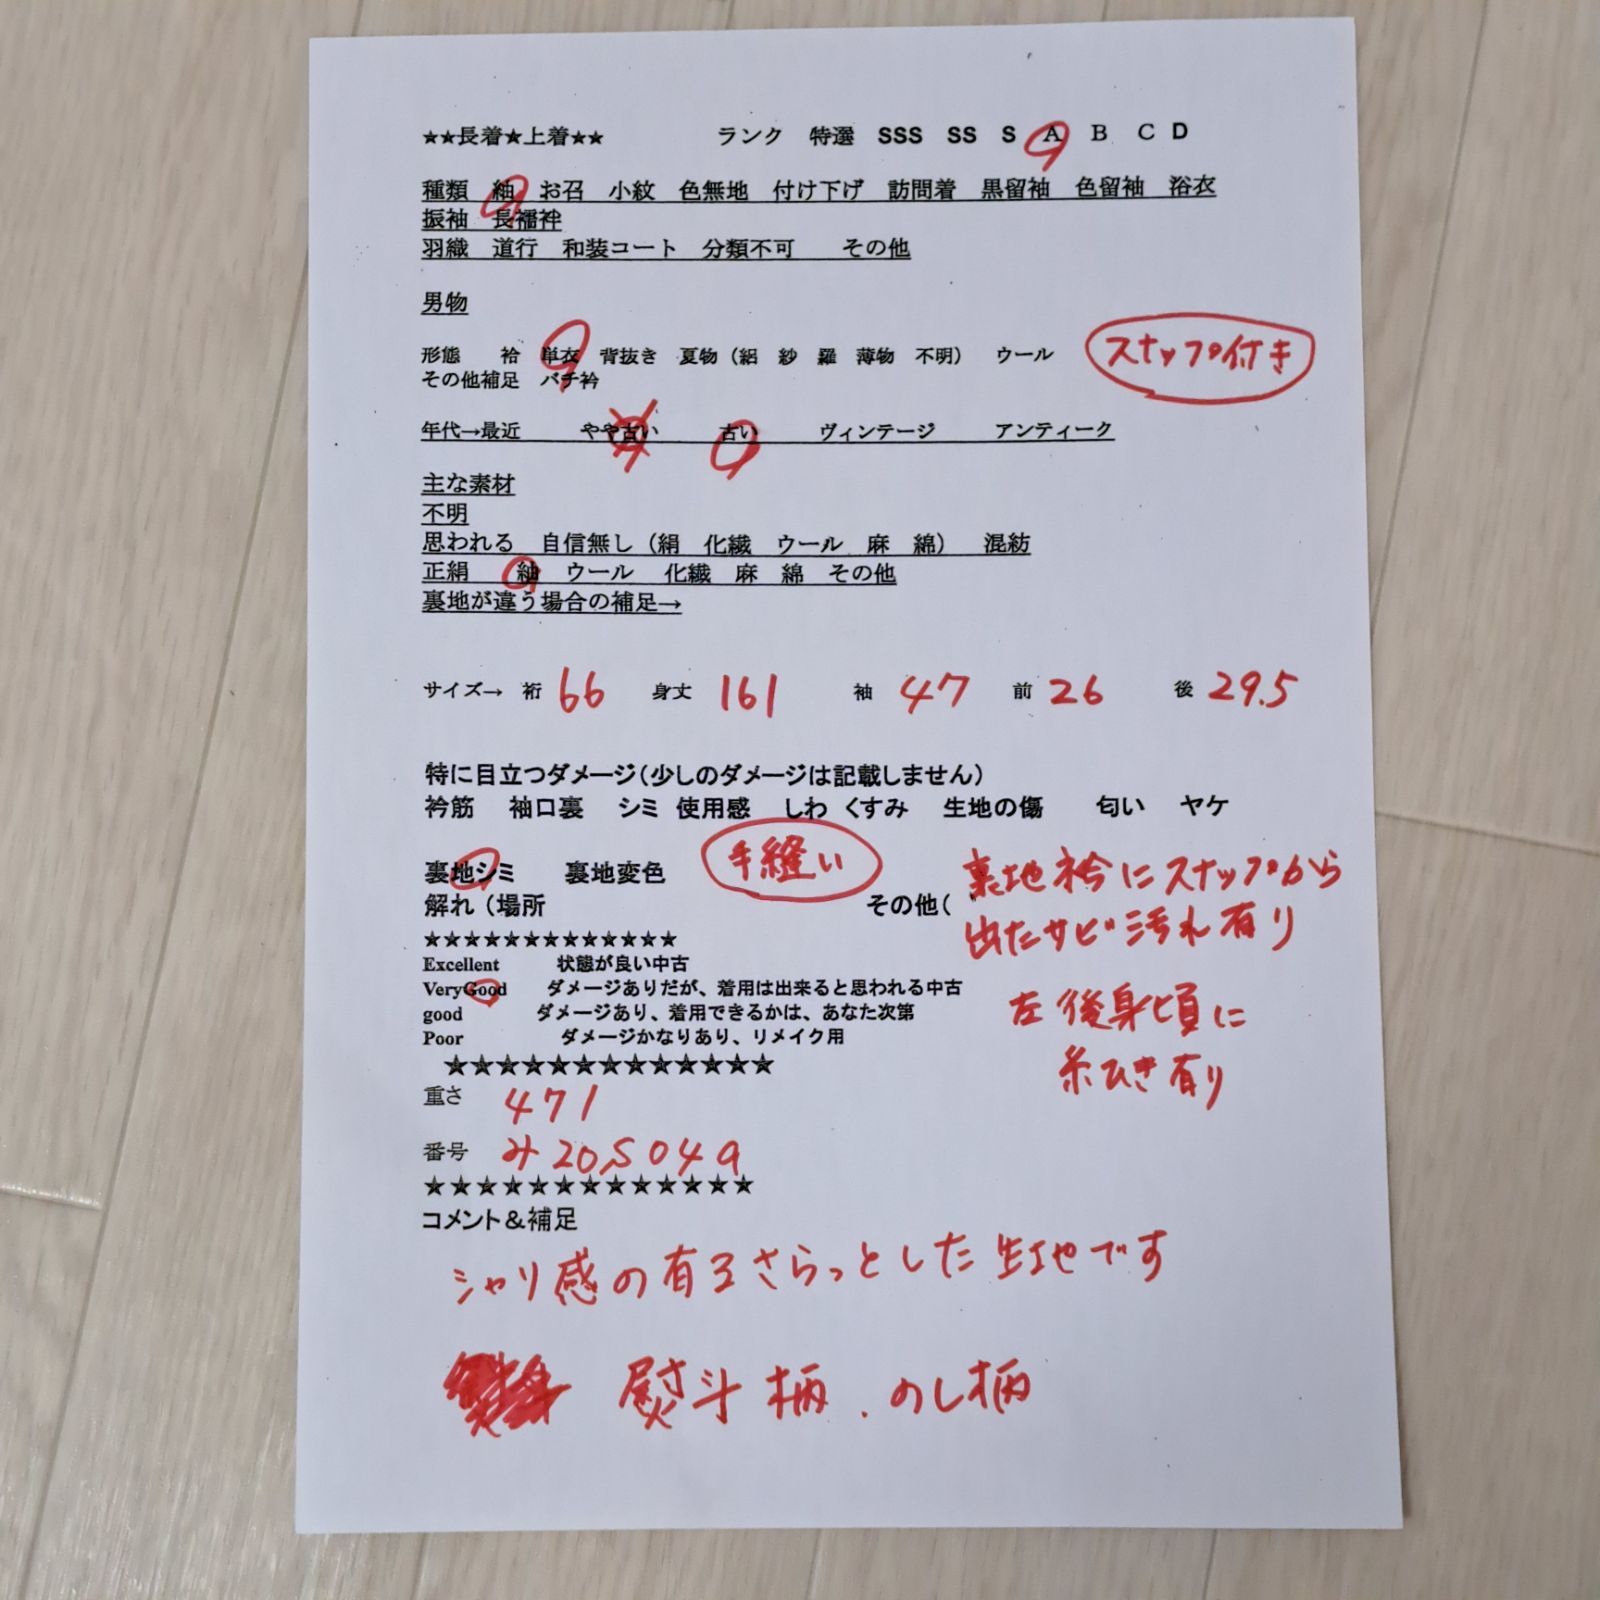 ★★長着★上着★★ ランク 特選 SSS SS S A B C D
種類 紬 お召 小紋 色無地 付け下げ 訪問着 黒留袖 色留袖 浴衣
振袖 長襦袢
羽織 道行 和装コート 分類不可 その他
男物
形態 袷 単衣 背抜き 夏物（絽 紗 羅 薄物 不明） ウール スナップ付き
その他補足 バチ衿
年代→最近 やや古い 古い ヴィンテージ アンティーク
主な素材
不明
思われる 自信無し（絹 化繊 ウール 麻 綿） 混紡
正絹 紬 ウール 化繊 麻 綿 その他
裏地が違う場合の補足→
サイズ→ 裄 66 身丈 161 袖 47 前 26 後 29.5
特に目立つダメージ（少しのダメージは記載しません）
衿筋 袖口裏 シミ 使用感 しわ くすみ 生地の傷 匂い ヤケ
裏地シミ 裏地変色 手縫い
解れ（場所 その他（
裏地衿にスナップから
出たサビ汚れ有り
左後身頃に
糸ひき有り
★★★★★★★★★★★★★
Excellent 状態が良い中古
VeryGood ダメージありだが、着用は出来ると思われる中古
good ダメージあり、着用できるかは、あなた次第
Poor ダメージかなりあり、リメイク用
★★★★★★★★★★★★★
重さ 471
番号 み205049
★★★★★★★★★★★★★
コメント＆補足
シャリ感の有るさらっとした生地です
熨斗柄.のし柄